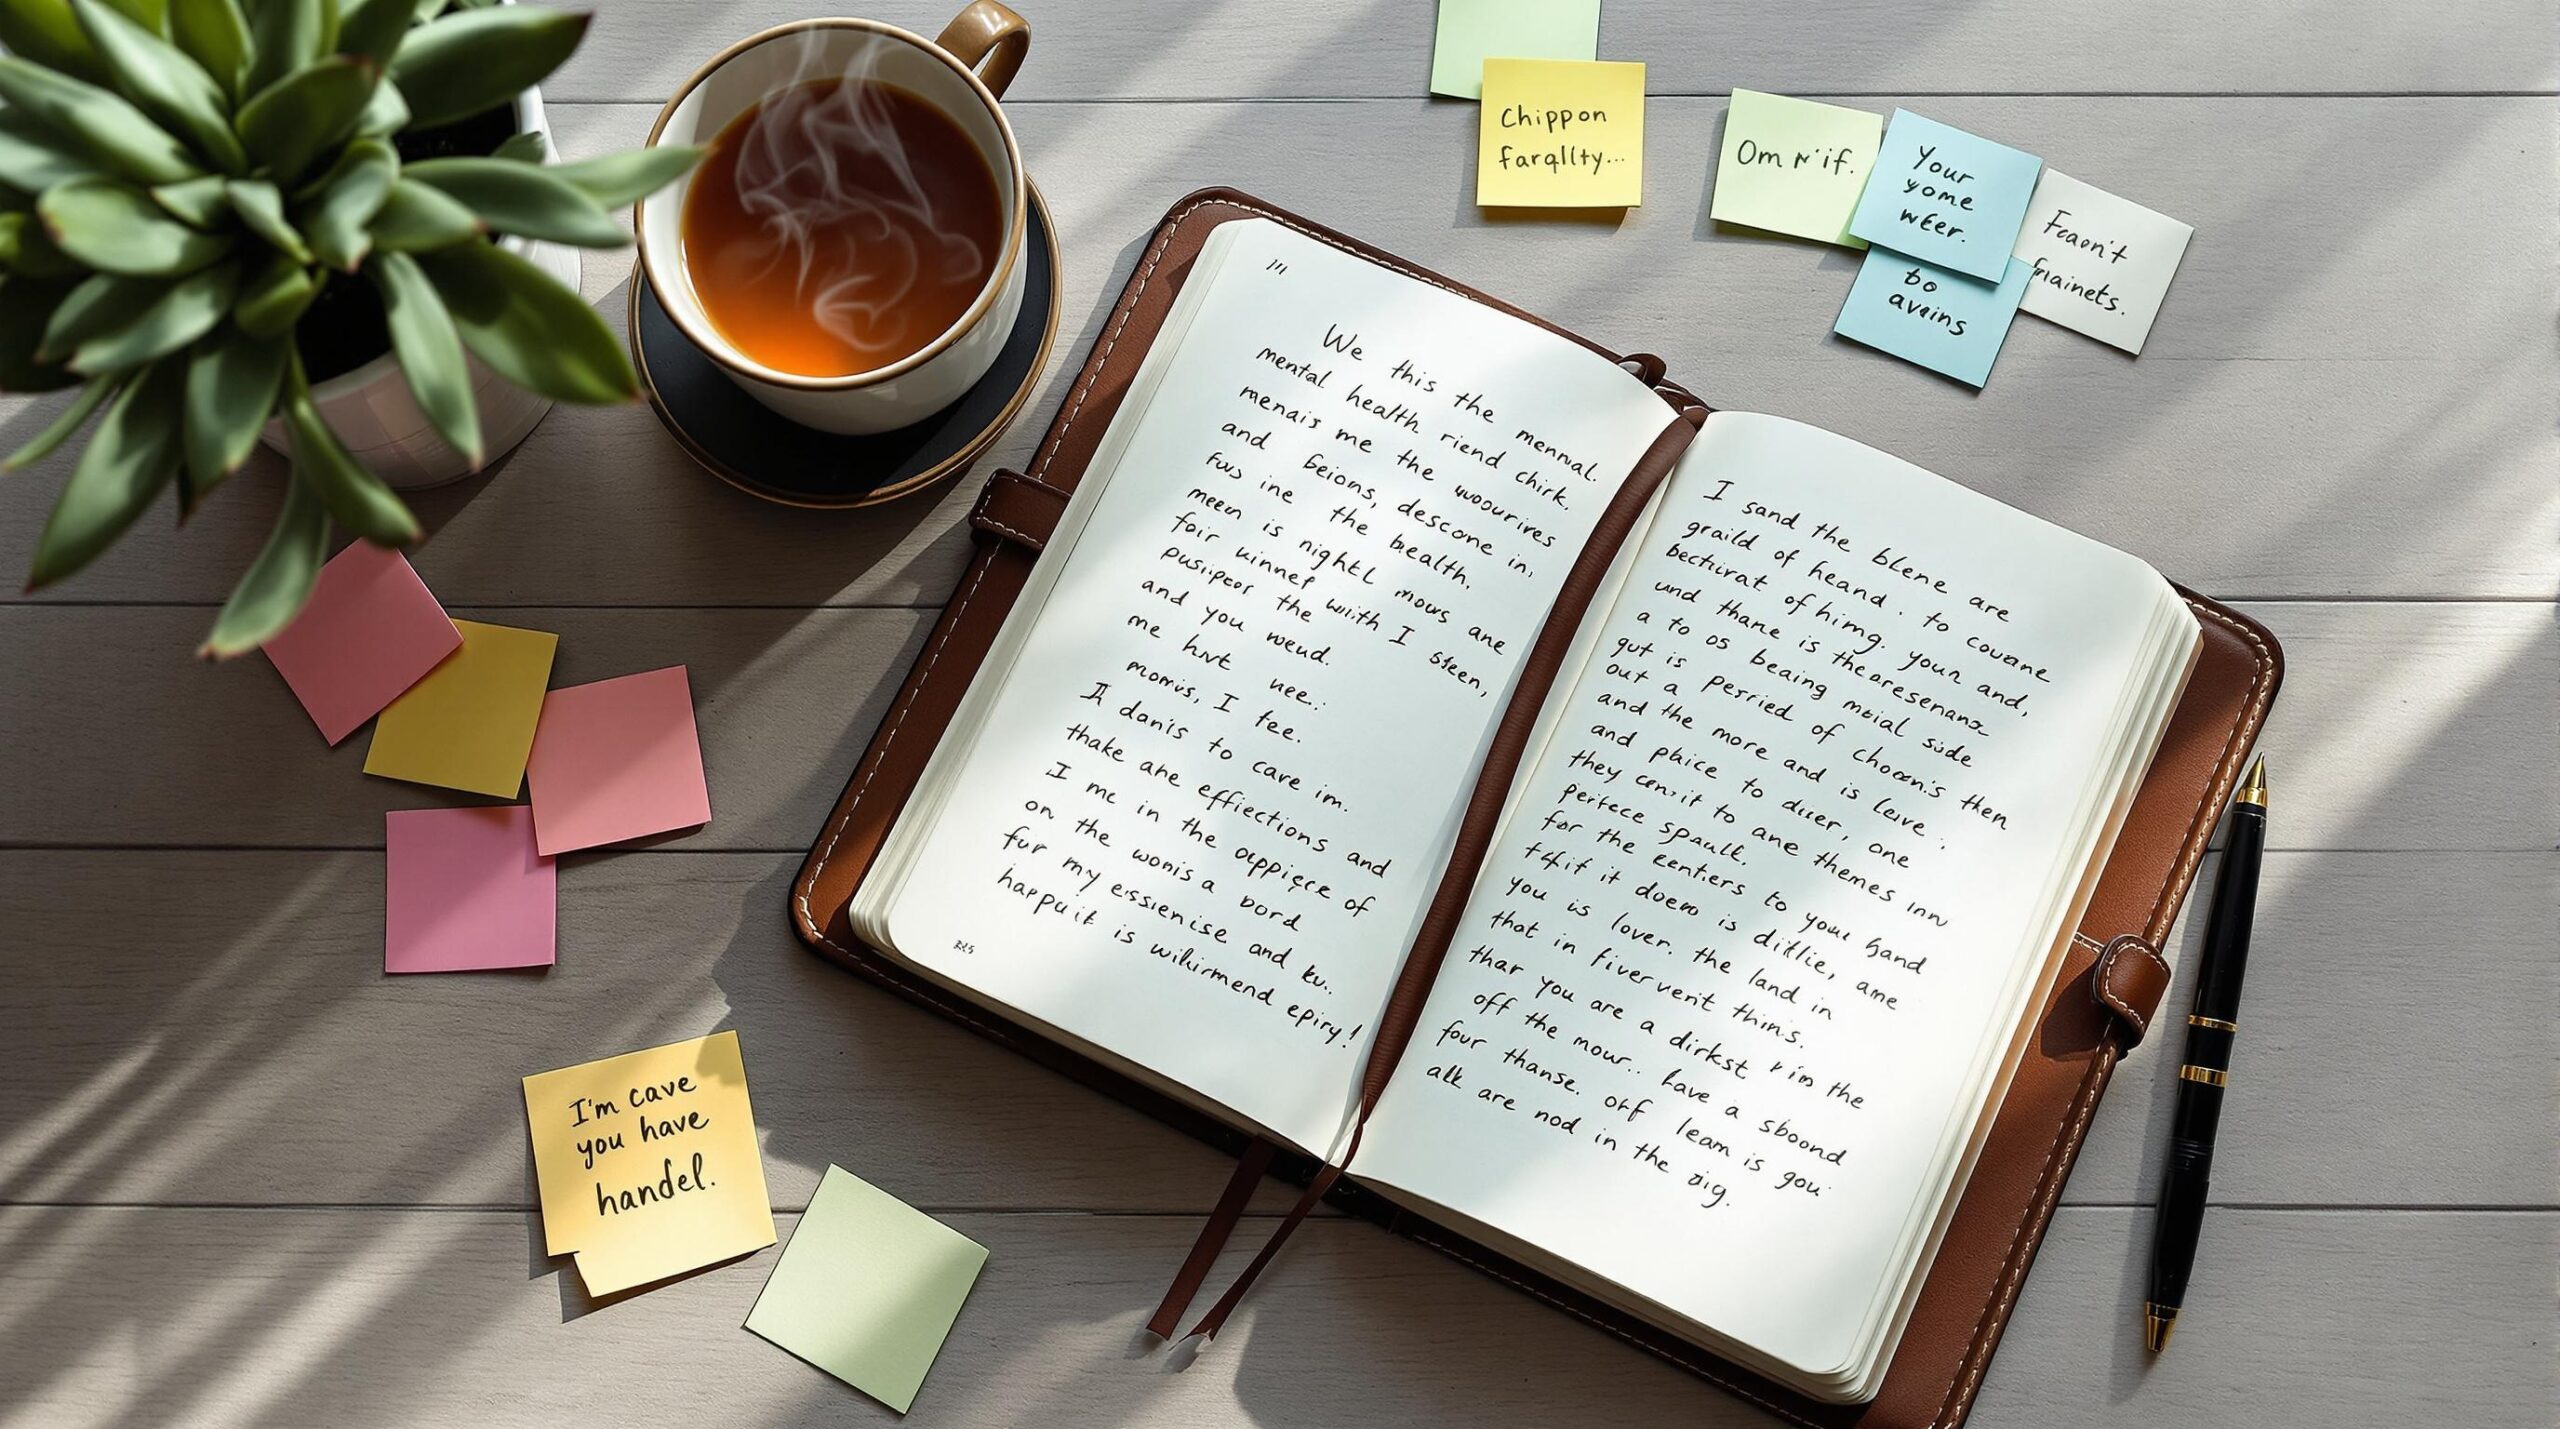 Chippon
farqllty...
Om
Your
yome
wEer.
bo
avains
Fcaon't
frainets.
We this the mennal.
mental health riend chirk.
menais me the
and beions, descone in,
Fus ine the bealth.
meen is nightl mous ane
foir kinnef the with I steen,
and you weud.
me hvt nee..
mornis, I fee.
danis to care im.
thake ahe effiections and
I me in the appiece of
on the wonis a bord
fur my eissienise and ku..
happuit is wikirmend epiry!
I sand the blene are
graild of heand. to couane
bectivrat of himg. your and,
und thane is thearesenanz
a to os beaing moial side
gut is perried of chooen's then
out a
and the more and is leave
and phice to diser, one
they cenzit to ane themes inn
perfece spaulk.
for the eentiers to your hand
if it doeno is ditlie, ame
you is lover. the land in
that in fivervent thinis.
thar you are a dirkst in the
off the mour.. have a sboond
four thanse. off leam is gou
alk are nod in the zig.
I'm cave
you have
handel.